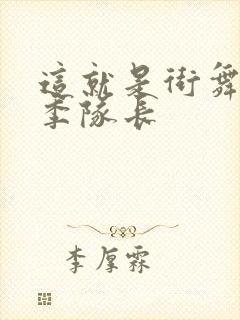 這就是街舞
季隊長
李厚霖